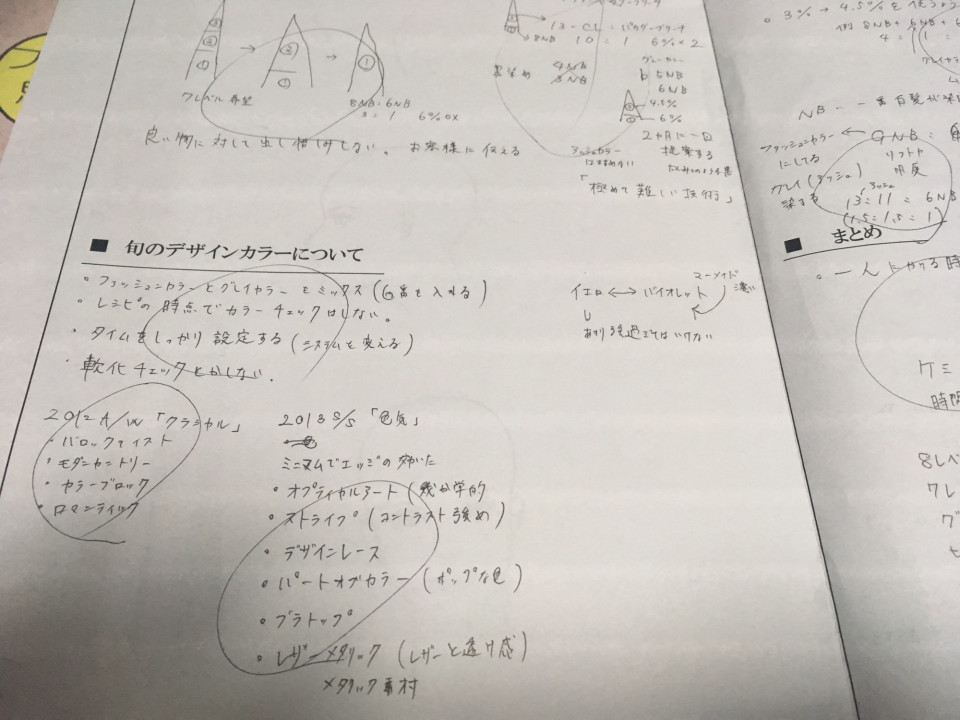 ③
②
①
→
②
①
→
①
7レベル 希望
8NB・6NB
6%OX
良い物に対して出し惜しみしない。 お客様に伝える
13-CL=パウダーブリーチ
8NB 10 = 1 6%×2
4NB
5NB
グレーカラー
5NB
6NB
4.5%
6%
2ヵ月に一回
提案する
「極めて難しい技術」
■ 旬のデザインカラーについて
・ファッションカラーとグレイカラーをミックス (G番を入れる)
・レシピの時点でカラーチェックはしない。
・タイムをしっかり設定する (システムを変える)
・軟化チェックとかしない。
イエロ ←→ バイオレット
マーメイド
濃い
あまり強過ぎてはいけない
2012 A/W 「クラシカル」
・バロックテイスト
・モダンカントリー
・カラーブロック
・ロマンティック
2013 S/S 「色気」
ミニマムでエッジの効いた
・オプティカルアート (幾何学的
・ストライプ (コントラスト強め)
・デザインレース
・パートオブカラー (ポップな色)
・ブラトップ
・レザーメタリック (レザーと透け感)
メタリック素材
・3% → 4.5%を使う
例 8NB+6NB+6
4 = 1 =
NB… 一番白髪が染
ファッションカラー ← GNB =
にしてる
リフトや
明度
グレイ (アッシュ)
染まる
アッシュ
13=11 = 6NB
(1.5=1.5=1)
■ まとめ
・一人にかける時
ケミ
時間
8レベ
7レ